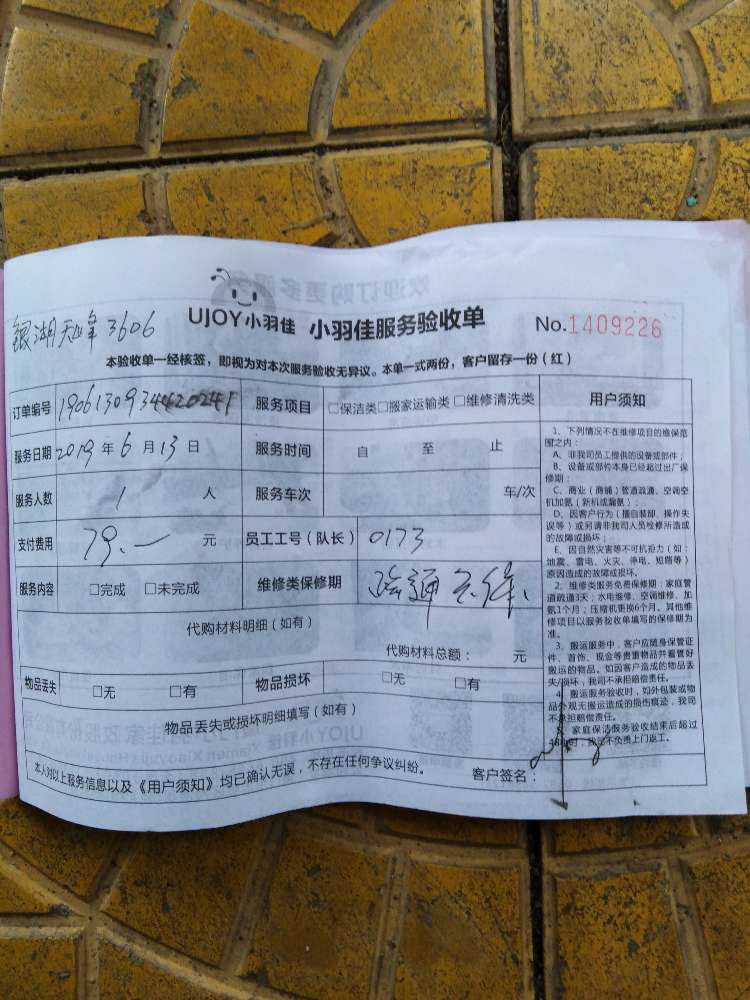 银湖天峰3606
UJOY小羽佳 小羽佳服务验收单 No.1409226
本验收单一经核签，即视为对本次服务验收无异议。本单一式两份，客户留存一份（红）
订单编号 1906130934420241 服务项目 □保洁类□搬家运输类□维修清洗类
服务日期 2019年6月13日 服务时间 自 至 止
服务人数 1 人 服务车次 车/次
支付费用 79.— 元 员工工号（队长） 0173
服务内容 □完成 □未完成 维修类保修期 疏通
代购材料明细（如有）
代购材料总额： 元
物品丢失 □无 □有 物品损坏 □无 □有
物品丢失或损坏明细填写（如有）
本人对以上服务信息以及《用户须知》均已确认无误，不存在任何争议纠纷。
客户签名：
用户须知
1、下列情况不在维修项目的维保范
围之内：
A、非我司员工提供的设备或部件；
B、设备或部件本身已经超过出厂保
修期；
C、商业（商铺）管道疏通、空调空
机加氨（新机或漏氨）；
D、因客户行为（擅自装卸、操作失
误等）或另请非我司人员检修所造成
的故障或损坏；
E、因自然灾害等不可抗拒力（如：
地震、雷电、火灾、停电、短路等）
原因造成的故障或损坏。
2、维修类服务免费保修期：家庭管
道疏通3天；水电维修、空调维修、加
氨1个月；压缩机更换6个月。其他维
修项目以服务验收单填写的保修期为
准。
3、搬运服务中，客户应随身保管证
件、首饰、现金等贵重物品并看管好
搬运的物品。如因客户造成的物品丢
失/损坏，我司不承担赔偿责任。
4、搬运服务验收时，如外包装或物
品外观无搬运造成的损伤痕迹，我司
不承担赔偿责任。
5、家庭保洁服务验收结束后超过
48小时，我司不负责上门返工。